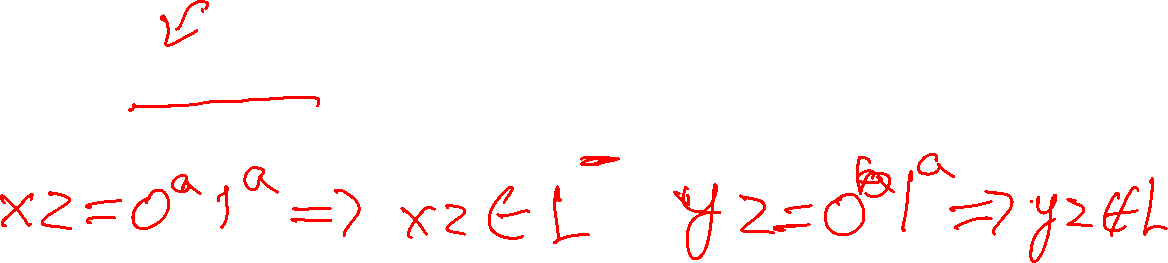 xz = 0^a 1^a => xz ∈ L yz = 0^b 1^a => yz ∉ L